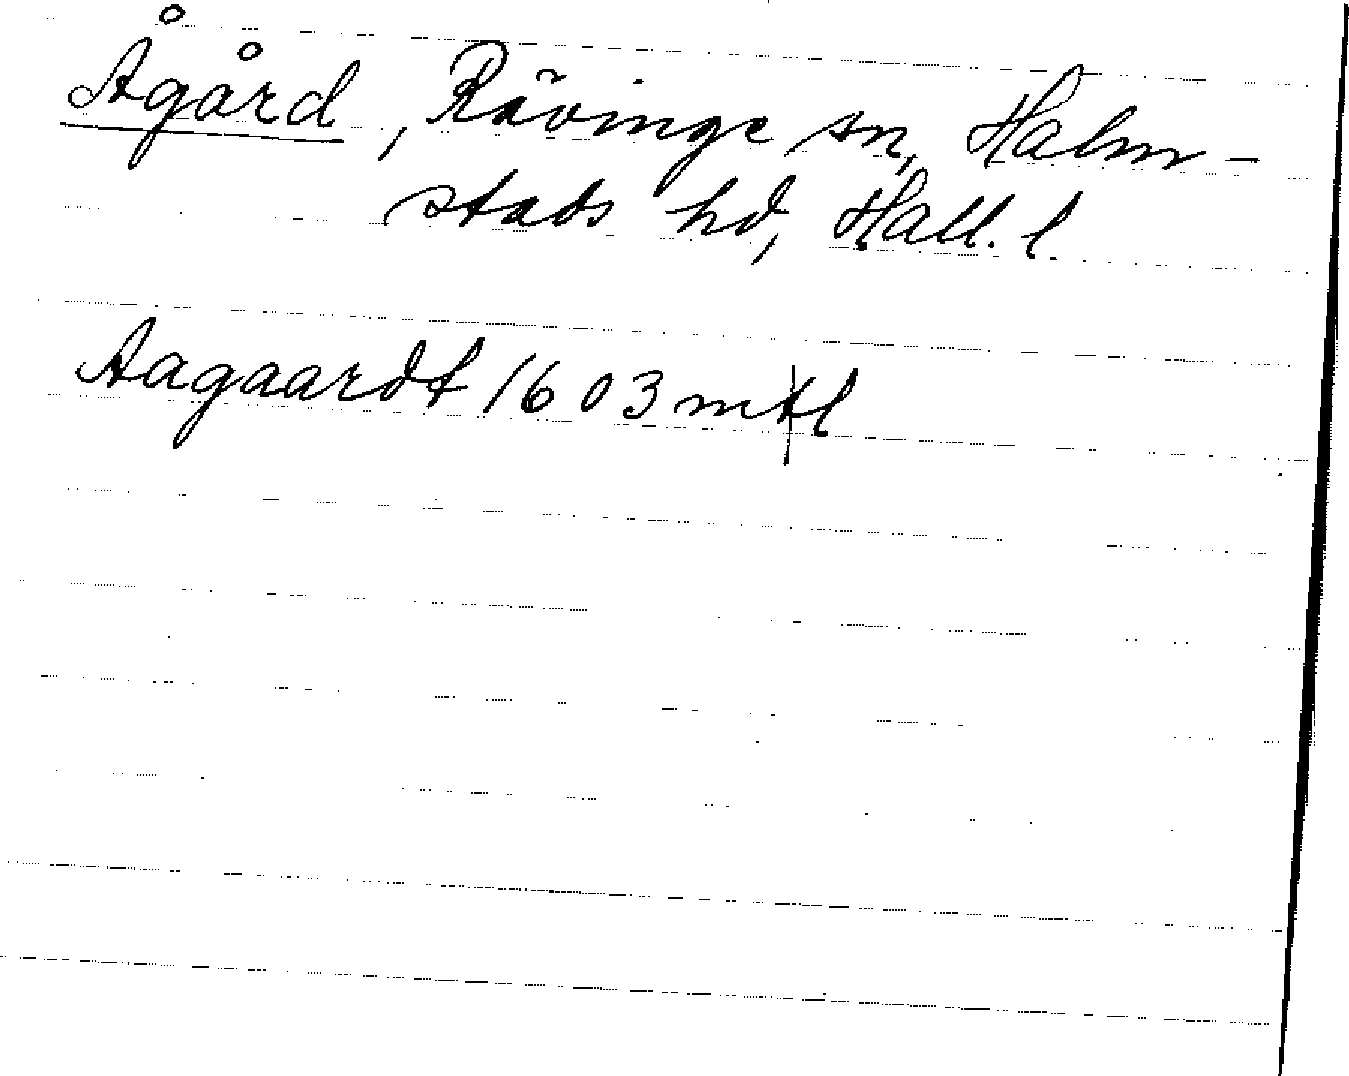 Ågård, Rävinge sn, Halm-
stads hd, Hall. l
Aagaardt 1603 mtl